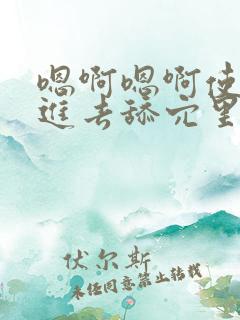 嗯啊嗯啊使
進去舔穴里
伏尔斯
未经同意禁止转载